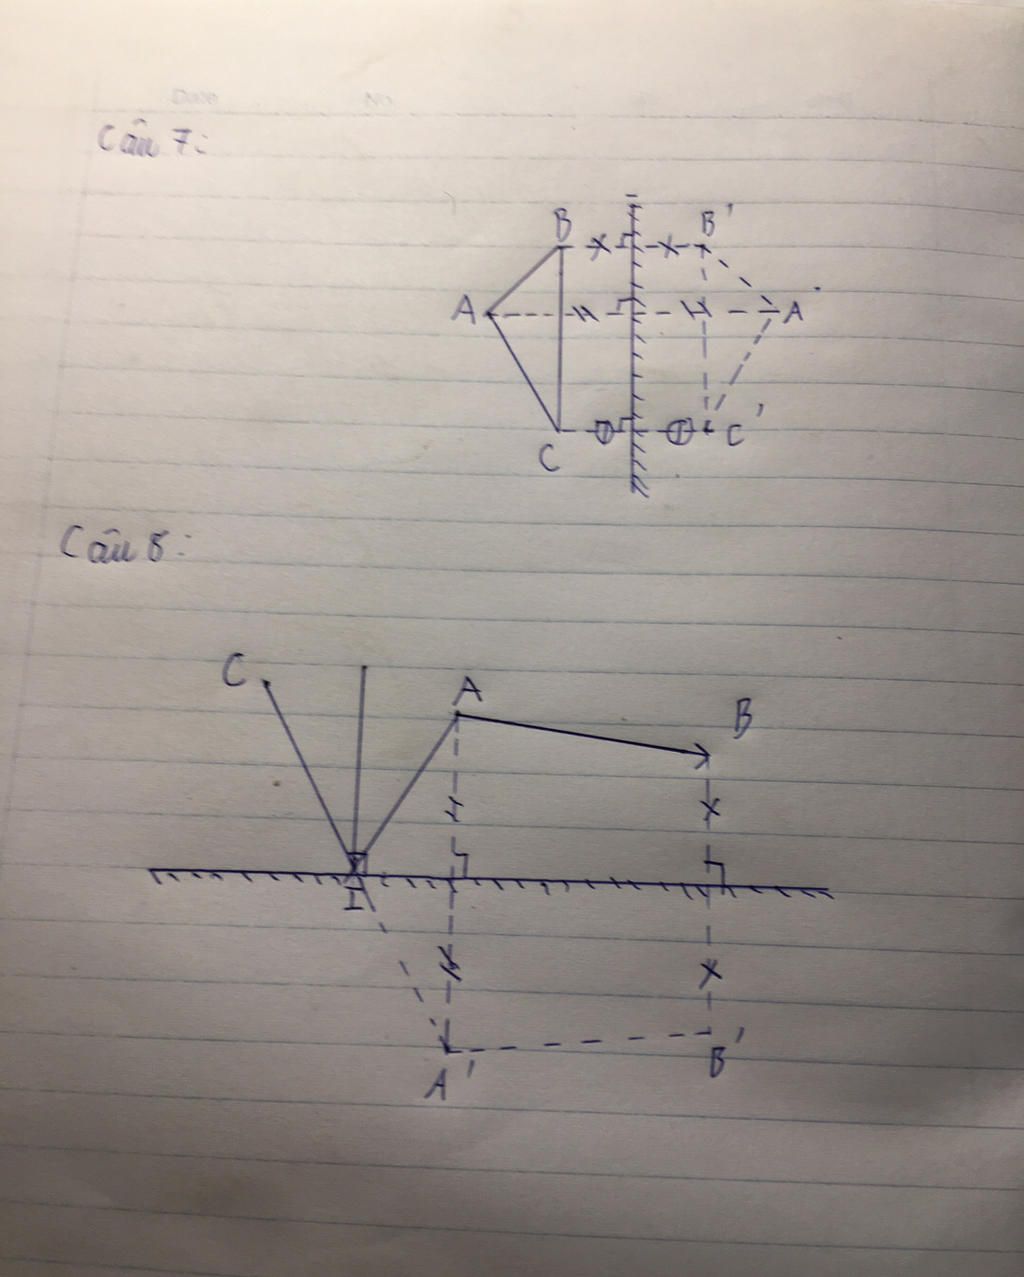 Date No
Câu 7:
B B'
A A'
C C'
Câu 8:
C A B
I
A' B'